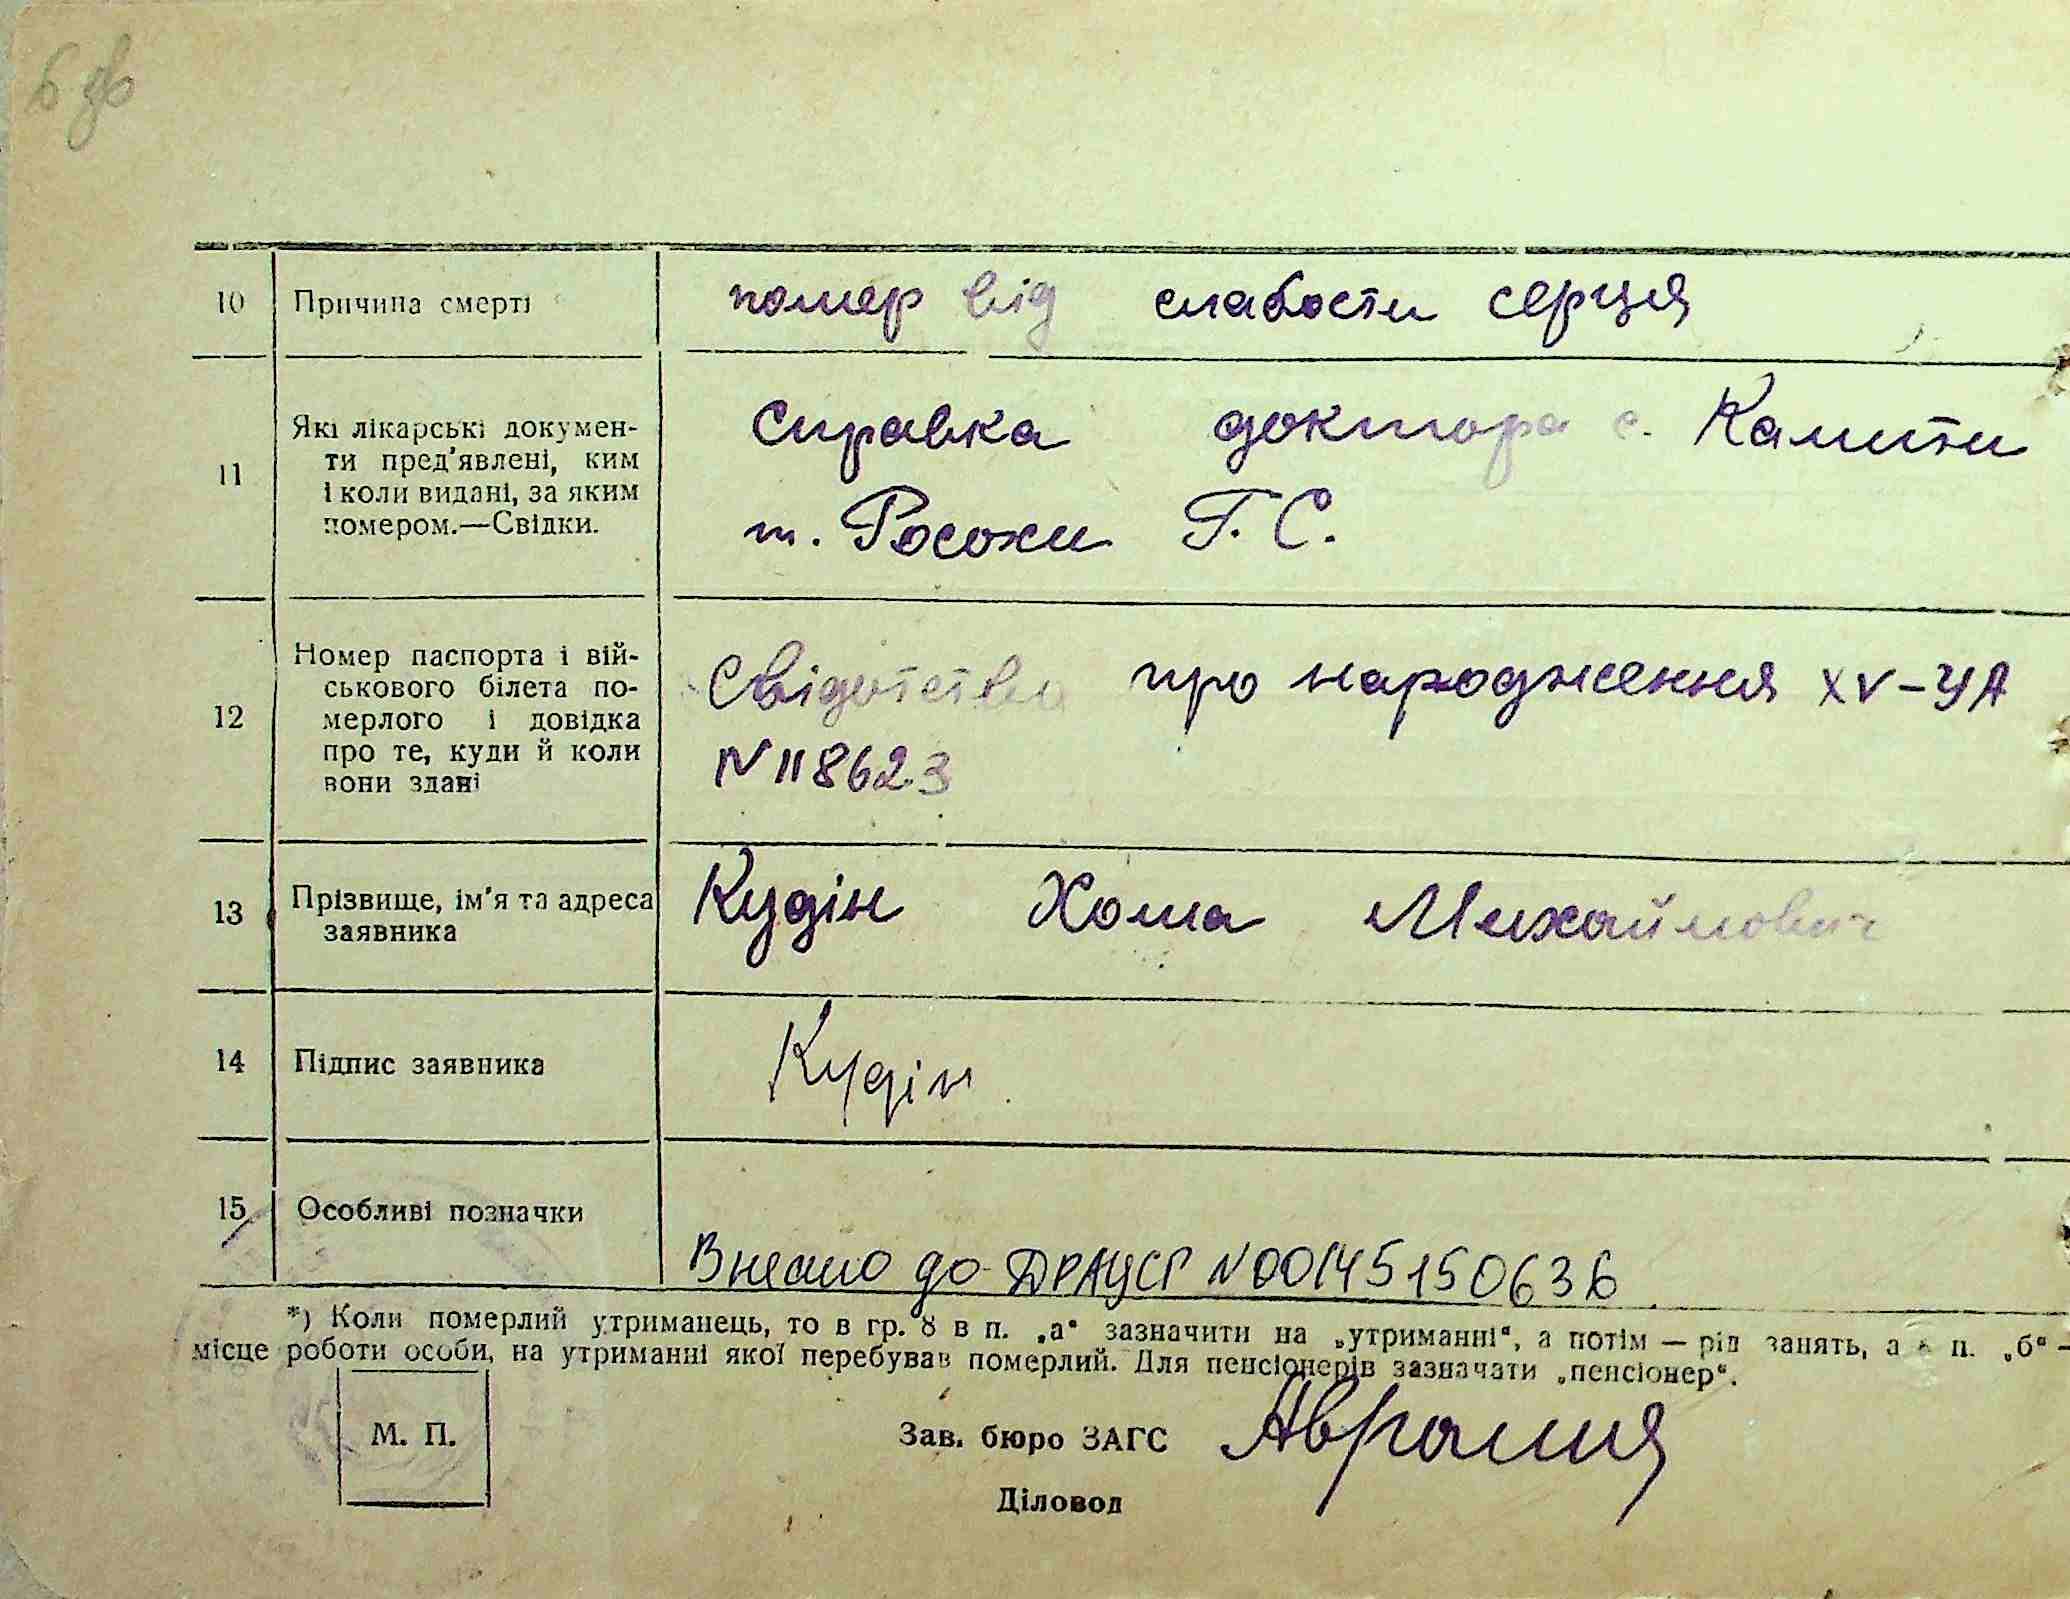 6 зв
10 Причина смерті помер від слабости серця
11 Які лікарські докумен-
ти пред'явлені, ким
і коли видані, за яким
номером.—Свідки.
Справка доктора с. Камити
т. Росохи Г. С.
12 Номер паспорта і вій-
ськового білета по-
мерлого і довідка
про те, куди й коли
вони здані
Свідотство про народження XV-УА
N 118623
13 Прізвище, ім'я та адреса
заявника
Кудін Хома Михайлович
14 Підпис заявника Кудін
15 Особливі позначки
Внесено до ДРАЦСГ N 00145150636
*) Коли померлий утриманець, то в гр. 8 в п. „а" зазначити на „утриманні", а потім — рід занять, а в п. „б" —
місце роботи особи, на утриманні якої перебував померлий. Для пенсіонерів зазначати „пенсіонер".
М. П.
Зав. бюро ЗАГС
Діловод